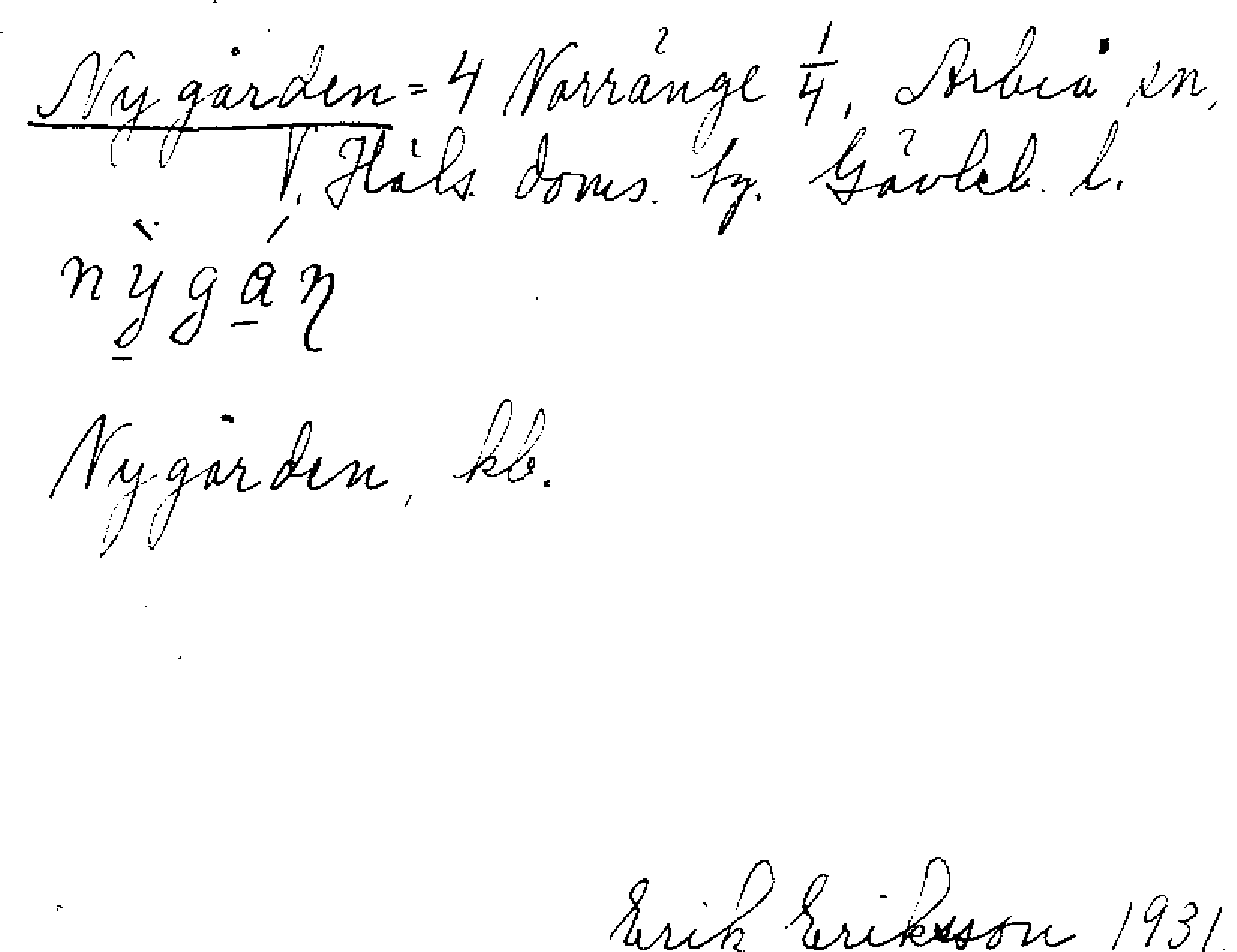 Nygården = 4 Norränge 1/4, Arbrå sn,
V. Häls. doms. hg. Gävleb. l.
nỳgáņ
Nygården, kb.
Erik Eriksson 1931